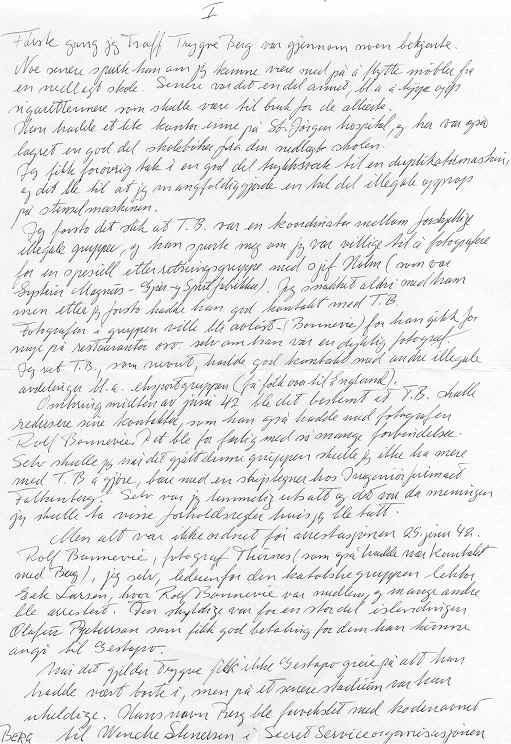 I
Første gang jeg traff Trygve Berg var gjennom noen bekjente.
Noe senere spurte han om jeg kunne være med på å flytte møbler fra
en nedlagt skole. Senere var det en del annet, bl.a. å
sigarettennere som skulle være til bruk for de allierte.
Han hadde et lite kontor inne på St. Jørgen hospital, og her var også
lagret en god del skolebøker fra den nedlagte skolen.
Jeg fikk forøvrig tak i en god del til en duplikatormaskin,
og det ble til at jeg mangfoldiggjorde en hel del illegale opprop
på stensilmaskinen.
Jeg forsto det slik at T.B. var en koordinator mellom forskjellige
illegale grupper, og han spurte meg om jeg var villig til å fotografere
for en spesiell etterretningsgruppe med sjef Holm (som var
på Magnus - Gjær- og Spritfabrikker). Jeg snakket aldri med ham
men etter jeg forsto hadde han god kontakt med T.B
Fotografen i gruppen ville bli avløst (Bonnevie) for han gikk for
meget på restauranter osv. selv om han var en dyktig fotograf.
Jeg vet T.B., som nevnt, hadde god kontakt med andre illegale
avdelinger bl.a. eksportgruppen (få folk over til England).
Omkring midten av juni 42 ble det bestemt at T.B. skulle
redusere sine kontakter, som han også hadde med fotografen
Rolf Bonnevie. Det ble for farlig med så mange forbindelser.
Selv skulle jeg når det gjaldt denne gruppen skulle jeg ikke ha mere
med T.B å gjøre, bare med en skipstegner hos Ingeniørfirmaet
Falkenberg. Selv var jeg temmelig utsatt og det var da meningen
jeg skulle ta visse forholdsregler hvis jeg ble tatt.
Men alt var ikke ordnet før arrestasjonen 25. juni 42.
Rolf Bonnevie, fotograf Thornes (som også hadde vært kontakt
med Berg), jeg selv, lederen for den katolske gruppen lektor
Eek Larsen, hvor Rolf Bonnevie var medlem, og mange andre
ble arrestert. Den skyldige var for en stor del islendingen
Olafur Pjetursson som fikk god betaling for dem han kunne
angi til Gestapo.
Når det gjelder Trygve fikk ikke Gestapo greie på att han
hadde vært borte i, men på et senere stadium var han
uheldige. Hans navn Berg ble forvekslet med kodenavnet
BERG til Wencke Stenersen i Secret Service organisasjonen